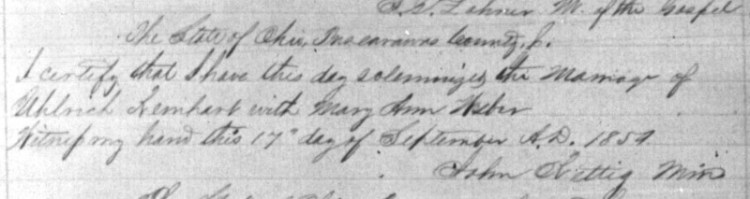 M. of the Gospel
The State of Ohio, Tuscarawas County, ss.
I certify that I have this day solemnized the Marriage of
Uhlrich Lemhart with Mary Ann Weber
Witness my hand this 17" day of September A.D. 1854
John Rettig Min